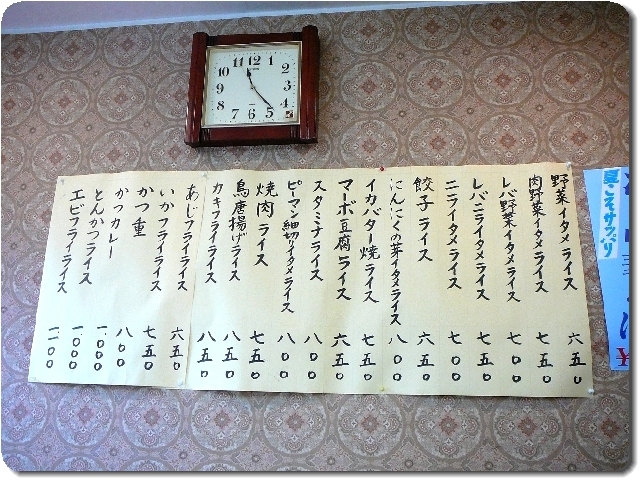 11 12 1
10 2
9 3
8 4
7 6 5
野菜イタメライス 六五〇
肉野菜イタメライス 七五〇
レバ野菜イタメライス 七〇〇
レバニライタメライス 七五〇
ニライタメライス 七〇〇
餃子ライス 六五〇
にんにくの芽イタメライス 八〇〇
イカバター焼ライス 七五〇
マーボ豆腐ライス 六五〇
スタミナライス 八〇〇
ピーマン細切りイタメライス 八〇〇
焼肉ライス 七五〇
鳥唐揚げライス 八五〇
カキフライライス 八五〇
あじフライライス 六五〇
いかフライライス 七五〇
かつ重 八〇〇
かつカレー 一〇〇〇
とんかつライス 一〇〇〇
エビフライライス 一一〇〇
夏こそサッパリ